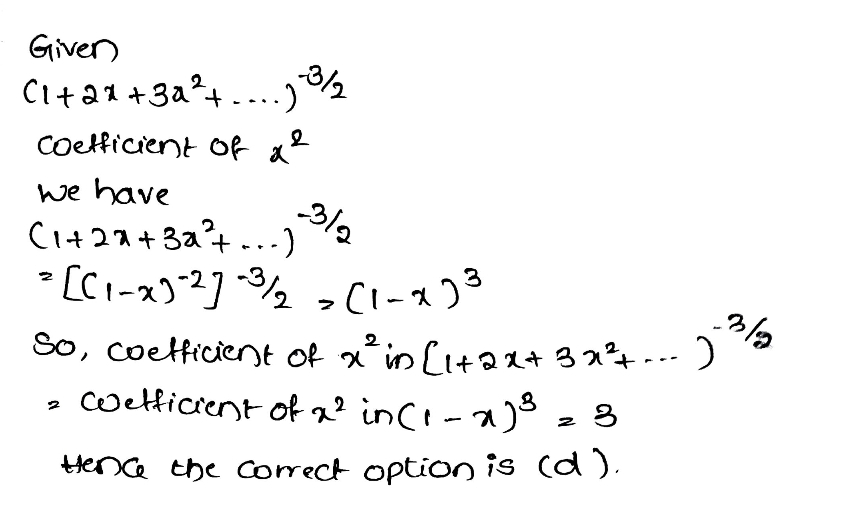 Given
(1+2x+3x²+....)^-3/2
coefficient of x²
we have
(1+2x+3x²+...)^-3/2
=[(1-x)^-2]^-3/2 = (1-x)³
So, coefficient of x² in [1+2x+3x²+...)^-3/2
= coefficient of x² in (1-x)³ = 3
Hence the correct option is (d).